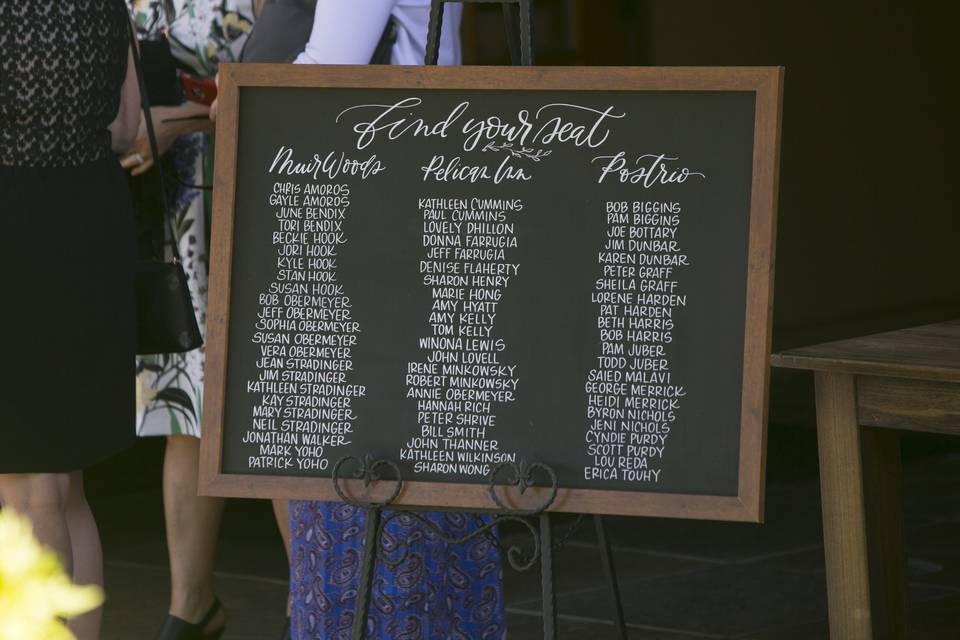 find your seat
Muir Woods
CHRIS AMOROS
GAYLE AMOROS
JUNE BENDIX
TORI BENDIX
BECKIE HOOK
JORI HOOK
KYLE HOOK
STAN HOOK
SUSAN HOOK
BOB OBERMEYER
JEFF OBERMEYER
SOPHIA OBERMEYER
SUSAN OBERMEYER
VERA OBERMEYER
JEAN STRADINGER
JIM STRADINGER
KATHLEEN STRADINGER
KAY STRADINGER
MARY STRADINGER
NEIL STRADINGER
JONATHAN WALKER
MARK YOHO
PATRICK YOHO
Pelican Inn
KATHLEEN CUMMINS
PAUL CUMMINS
LOVELY DHILLON
DONNA FARRUGIA
JEFF FARRUGIA
DENISE FLAHERTY
SHARON HENRY
MARIE HONG
AMY HYATT
AMY KELLY
TOM KELLY
WINONA LEWIS
JOHN LOVELL
IRENE MINKOWSKY
ROBERT MINKOWSKY
ANNIE OBERMEYER
HANNAH RICH
PETER SHRIVE
BILL SMITH
JOHN THANNER
KATHLEEN WILKINSON
SHARON WONG
Postrio
BOB BIGGINS
PAM BIGGINS
JOE BOTTARY
JIM DUNBAR
KAREN DUNBAR
PETER GRAFF
SHEILA GRAFF
LORENE HARDEN
PAT HARDEN
BETH HARRIS
BOB HARRIS
PAM JUBER
TODD JUBER
SAIED MALAVI
GEORGE MERRICK
HEIDI MERRICK
BYRON NICHOLS
JENI NICHOLS
CYNDIE PURDY
SCOTT PURDY
LOU REDA
ERICA TOUHY